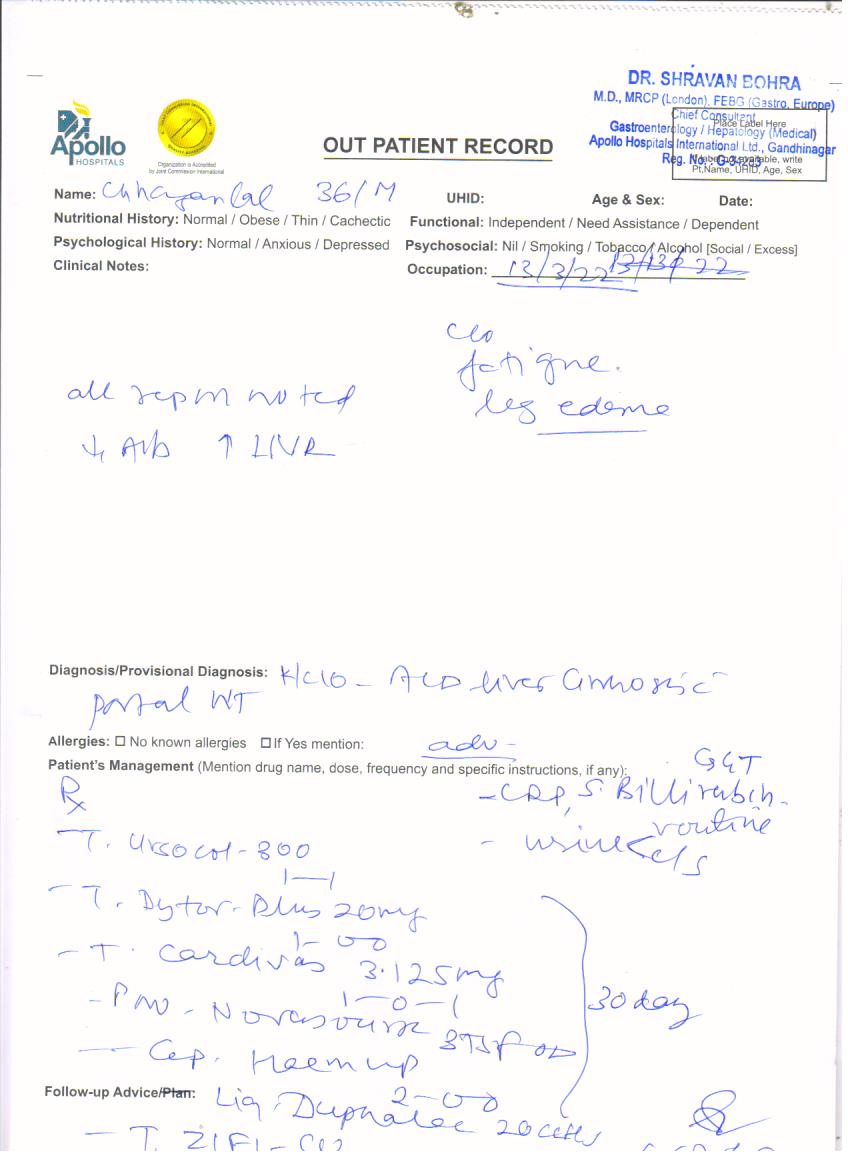 DR. SHRAVAN BOHRA
M.D., MRCP (London), FEBG (Gastro, Europe)
Chief Consultant
Place Label Here
Gastroenterology / Hepatology (Medical)
Apollo Hospitals International Ltd., Gandhinagar
Reg. No.:
If label not available, write
Pt,Name, UHID, Age, Sex
Apollo
HOSPITALS
Organization is Accredited
by Joint Commission International
OUT PATIENT RECORD
Name: Chhaganlal 36/M UHID: Age & Sex: Date:
Nutritional History: Normal / Obese / Thin / Cachectic Functional: Independent / Need Assistance / Dependent
Psychological History: Normal / Anxious / Depressed Psychosocial: Nil / Smoking / Tobacco / Alcohol [Social / Excess]
Clinical Notes: Occupation: 13/3/22
c/o
fatigue.
all report noted leg edema
↓ Alb ↑
Diagnosis/Provisional Diagnosis: K/C/O - ALD liver cirrhosis c
portal HT
Allergies: ☐ No known allergies ☐ If Yes mention: adv -
Patient's Management (Mention drug name, dose, frequency and specific instructions, if any): GGT
Rx - CRP, S. Billirubin
- urine routine
c/s
- T. Ursocol-300
1—1
- T. Dytor-Plus 20mg
1-00
- T. Cardivas 3.125mg
1-0-1
- Pw - Novasource 3TSF OD
30 day
- Cap. Haem up
2-00
Follow-up Advice/Plan: Liq. Duphalac 20cc HS
- T. ZIFI-